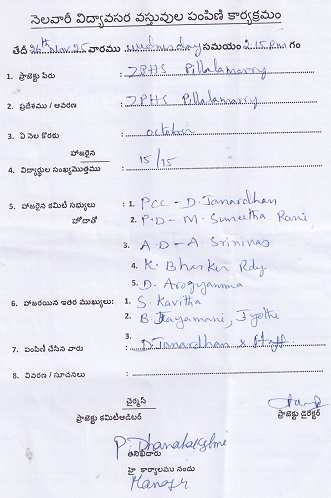 నెలవారీ విద్యావసర వస్తువుల పంపిణి కార్యక్రమం
తేదీ 26th Nov 25 వారము wednesday సమయం 2.15 Pm గం
1. ప్రాజెక్టు పేరు : ZPHS Pillalamarry
2. ప్రదేశము / ఆవరణ : ZPHS Pillalamarry
3. ఏ నెల కొరకు : october
హాజరైన
4. విద్యార్థుల సంఖ్యమొత్తము : 15/15
5. హాజరైన కమిటి సభ్యులు : 1. PCC - D. Janardhan
హోదాతో 2. P.D - M. Suneetha Rani
3. A.D - A Srininas
4. K. Bhasker Rdy.
5. D. Arogyamma
6. హాజరయిన ఇతర ముఖ్యులు: 1. S. Kavitha
2. B. Jayamani, Jyothi
3.
7. పంపిణి చేసిన వారు : D Janardhan & Staff
8. వివరణ / సూచనలు :
చైర్మన్
ప్రాజెక్టు కమిటఆడిటర్ ప్రాజెక్టు డైరెక్టర్
P. Dhanalakshmi
తనిఖీదారు
హై కార్యాలయము నందు
Manager